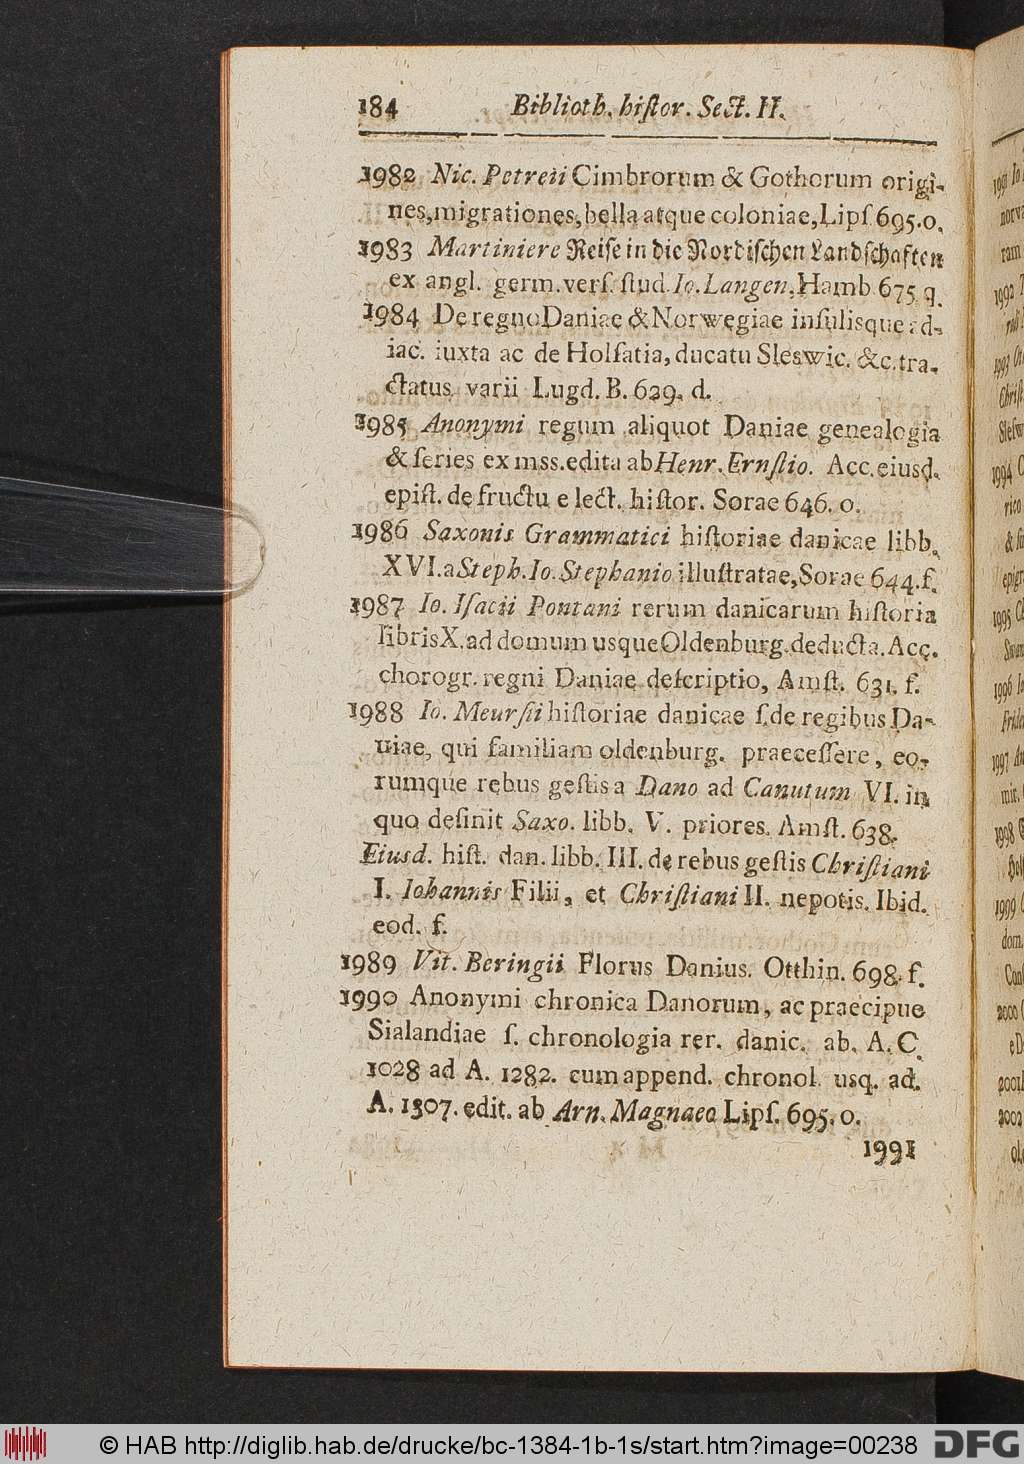 184 Biblioth. histor. Sect. II.
1982 Nic. Petreii Cimbrorum & Gothorum origi-
nes, migrationes, bella atque coloniae, Lipſ 695. o.
1983 Martiniere Reiſe in die Nordiſchen Landſchaften
ex angl. germ. verſ. ſtud. Io. Langen, Hamb 675. q.
1984 De regno Daniae & Norwegiae inſulisque ad-
iac. iuxta ac de Holſatia, ducatu Sleswic. &c. tra-
ctatus varii Lugd. B. 629. d.
1985 Anonymi regum aliquot Daniae genealogia
& ſeries ex mss. edita ab Henr. Ernſtio. Acc. eiusd.
epiſt. de fructu e lect. hiſtor. Sorae 646. o.
1986 Saxonis Grammatici hiſtoriae danicae libb.
XVI. a Steph. Io. Stephanio illuſtratae, Sorae 644. f.
1987 Io. Iſacii Pontani rerum danicarum hiſtoria
libris X. ad domum usque Oldenburg. deducta. Acc.
chorogr. regni Daniae deſcriptio, Amſt. 631. f.
1988 Io. Meurſii hiſtoriae danicae ſ. de regibus Da-
niae, qui familiam oldenburg. praeceſſere, eo-
rumque rebus geſtis a Dano ad Canutum VI. in
quo deſinit Saxo. libb. V. priores. Amſt. 638.
Eiusd. hiſt. dan. libb. III. de rebus geſtis Chriſtiani
I. Iohannis Filii, et Chriſtiani II. nepotis. Ibid.
eod. f.
1989 Vit. Beringii Florus Danius. Otthin. 698. f.
1990 Anonymi chronica Danorum, ac praecipue
Sialandiae ſ. chronologia rer. danic. ab. A. C.
1028 ad A. 1282. cum append. chronol. usq. ad.
A. 1307. edit. ab Arn. Magnaeo Lipſ. 695. o.
1991
© HAB http://diglib.hab.de/drucke/bc-1384-1b-1s/start.htm?image=00238
DFG